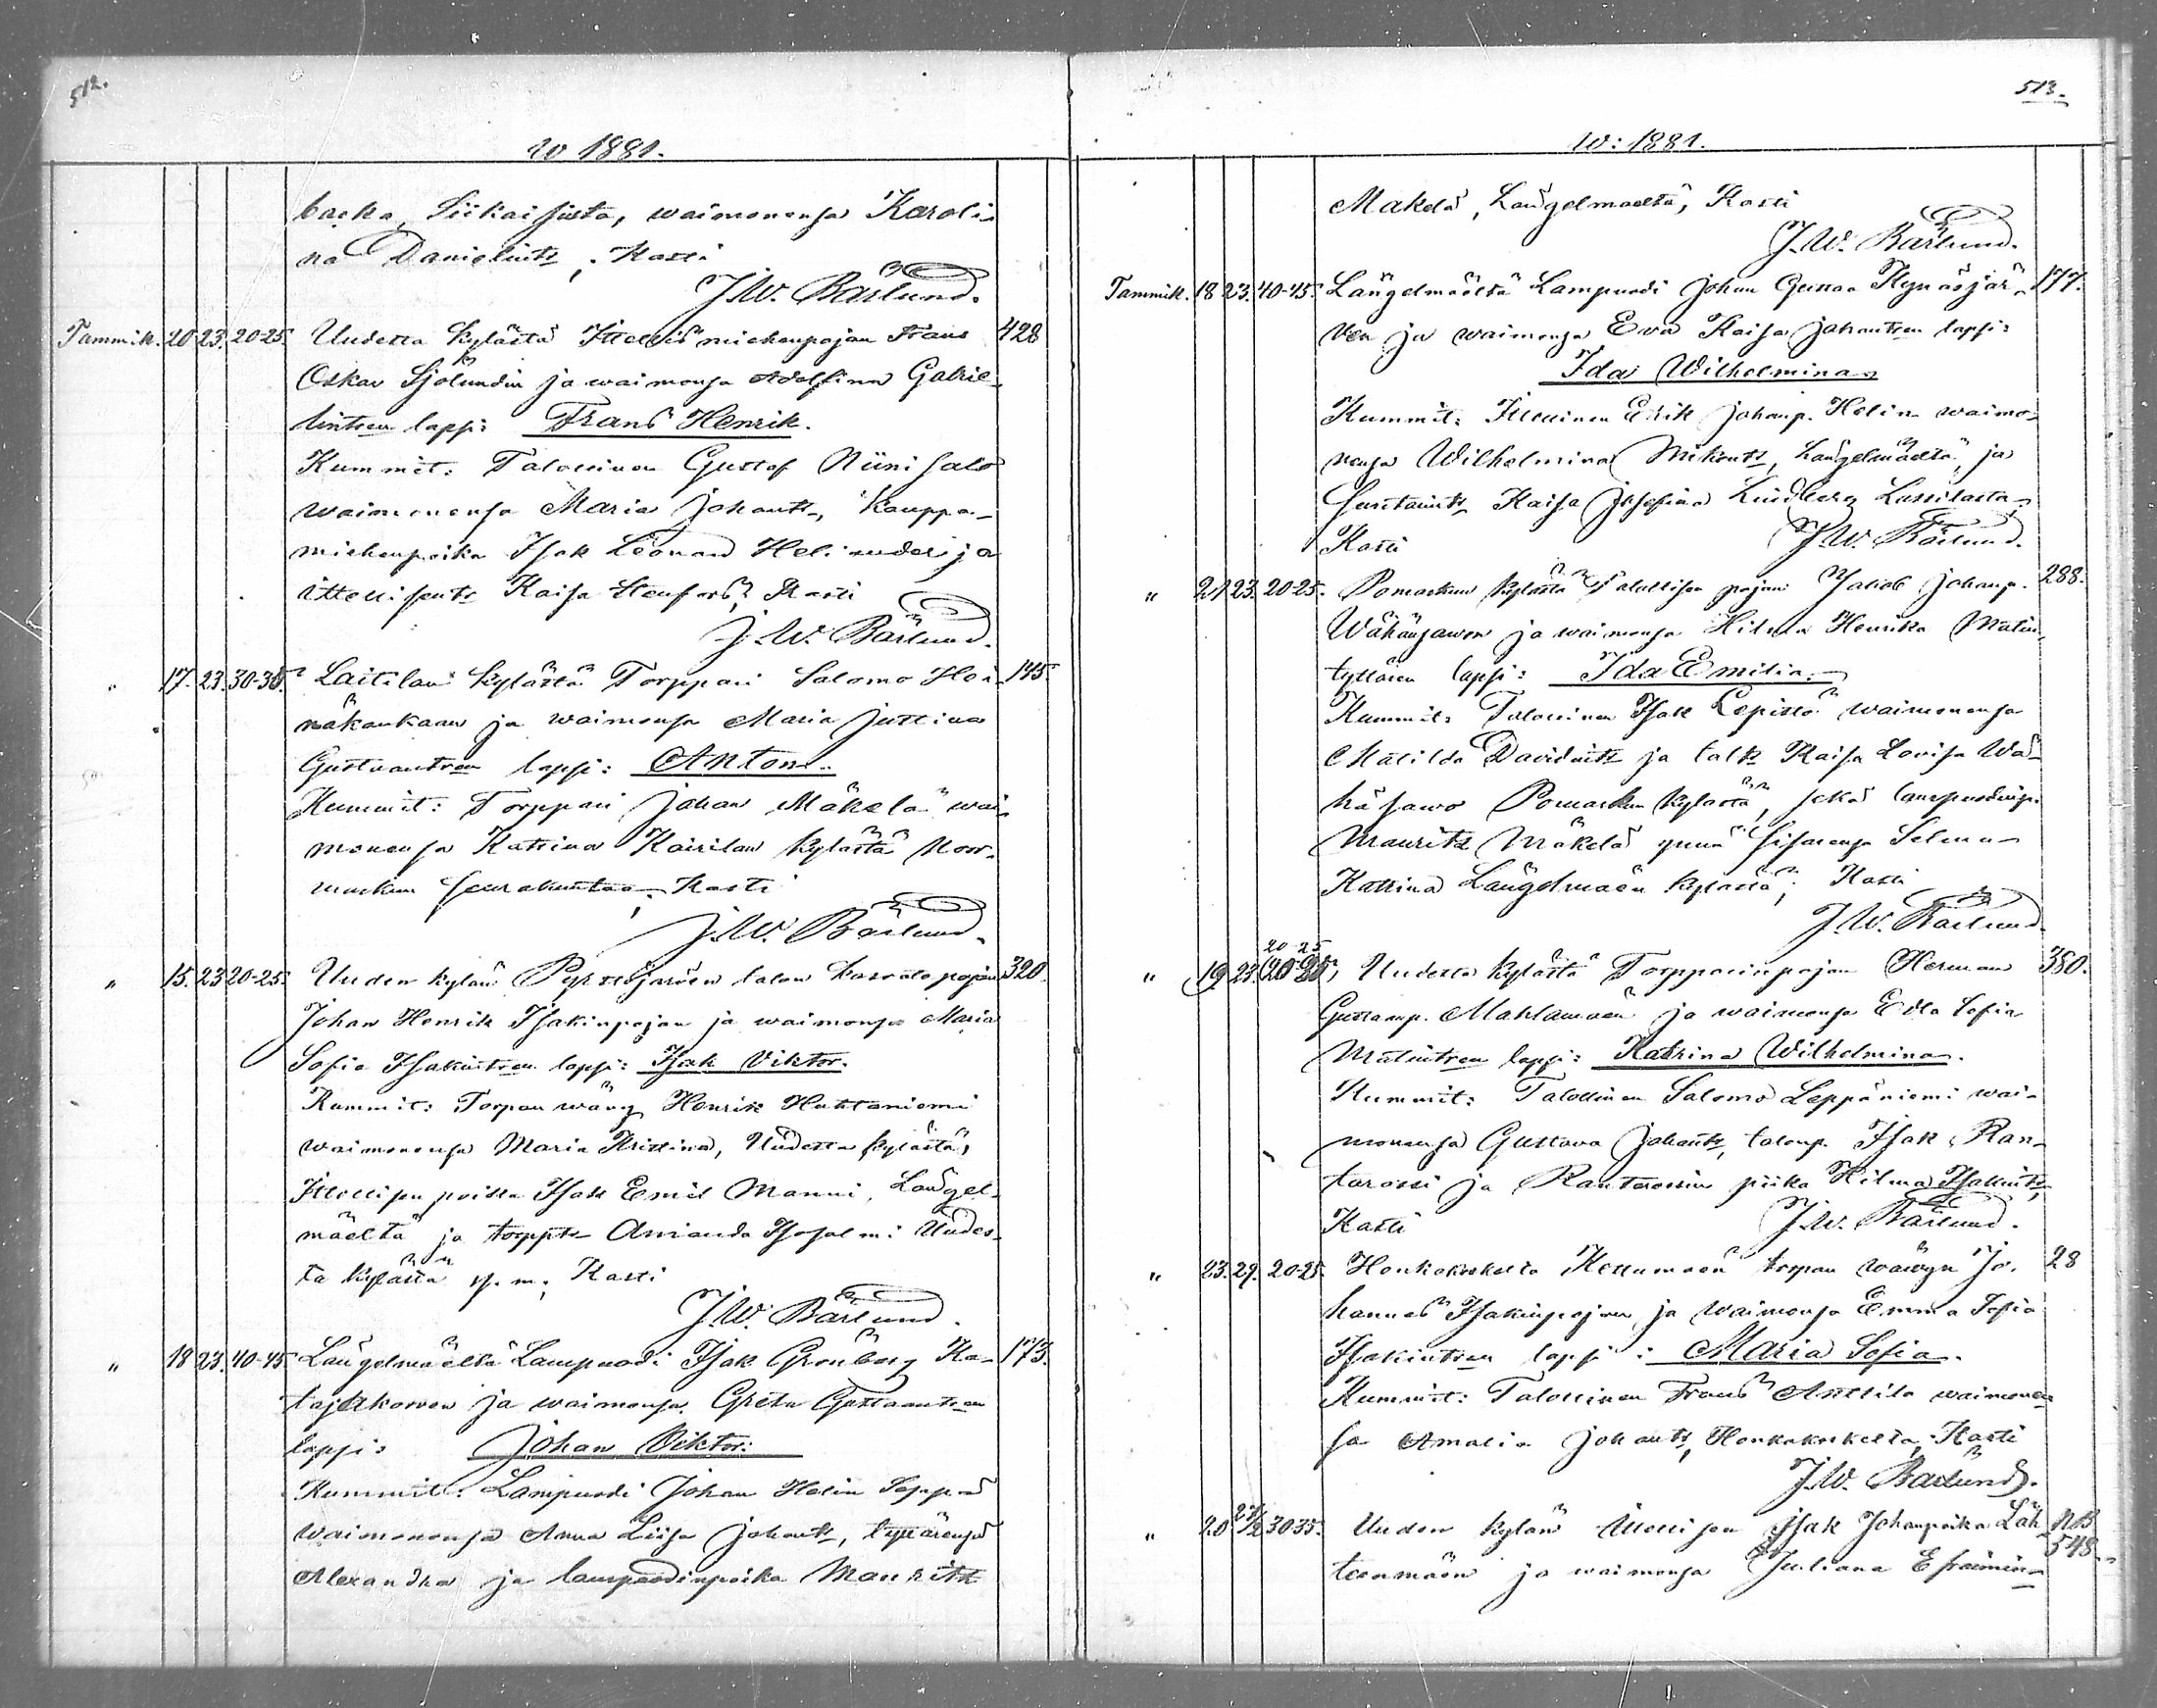 512.
w 1881.
backa, Siikaisista, waimonensa Karoli-
na Danielintr; Kasti
J.W. Bärlund.
Tammik. 20 23. 20-25. Uudesta kylästä Itsellismiehenpojan Frans 428
Oskar Sjölundin ja waimonsa Adolfina Gabrie-
lintren lapsi: Frans Henrik.
Kummit: Talollinen Gustaf Niinisalo
waimonensa Maria Johantr, Kauppa-
miehenpoika Isak Leonard Helander ja
ittellisentr Kaisa Stenfors, Kasti
J.W. Bärlund.
" 17. 23. 30-35. Laitilan kylästä Torppari Salomo Hei- 145
näkankaan ja waimonsa Maria Justina
Gustaantren lapsi: Anton.
Kummit: Torppari Johan Mäkelä wai-
monensa Katrina Kairilan kylästä Noor-
markun seurakuntaa; Kasti
J.W. Bärlund.
" 15. 23 20-25. Uuden kylän talon pojan 320.
Johan Henrik Isakinpojan ja waimonsa Maria
Sofia Isakintren lapsi: Isak Viktor.
Kummit: Torpan wäwy Henrik Huhtaniemi
waimonensa Maria Kristina, Uudesta kylästä,
Itsellisen poika Isak Emil Manni, Längel-
mäeltä ja torpptr Amanda Isosalmi Uudes-
ta kylästä Kasti
J.W. Bärlund.
" 18 23. 40-45 Längelmäeltä Lampuodi Isak Grönberg Ka- 173.
tajakorven ja waimonsa Greta Gustaantren
lapsi: Johan Viktor.
Kummit: Lampuodi Johan Helin Seppä
waimonensa Anna Liisa Johantr, tyttärensä
Alexandra ja lampuodinpoika Mauritz
513.
w: 1881.
Mäkelä, Längelmäeltä, Kasti
J.W. Bärlund.
Tammik. 18 23. 40-45. Längelmäeltä Lampuodi Johan Gustaa Hynäsjär- 177.
ven ja waimonsa Eva Kaisa Johantren lapsi:
Ida Wilhelmina
Kummit: Itsellinen Erik Johanp. Helin waimo-
nensa Wilhelmina Mikontr, Längelmäeltä, ja
Kaisa Josefina Lindberg Lassilasta,
Kasti J.W. Bärlund.
" 21 23. 20-25. Pomarkun kylästä Talollisen pojan Jakob Johanp. 288.
Wähäsawon ja waimonsa Hilma Henrika Matin
tyttären lapsi: Ida Emilia.
Kummit: Talollinen Isak Lepistö waimonensa
Matilda Davidintr ja taltr Kaisa Lovisa Wä-
häsawo Pomarkun kylästä, sekä lampuodinp.
Mauritz Mäkelä ynnä sisarensa Selma
Katrina Längelmäen kylästä; Kasti
J.W. Bärlund.
20-25
" 19 23. 20-25, Uudesta kylästä Torpparinpojan Herman 380.
Gustaanp. Mahlamäen ja waimonsa Edla Sofia
Matintren lapsi: Katrina Wilhelmina.
Kummit: Talollinen Salomo Leppäniemi wai-
monensa Gustava Johantr, talonp. Isak Ran-
tarossi ja Rantarossin piika Hilma Isakintr,
Kasti J.W. Bärlund.
" 23. 29. 20-25. Honkakoskelta Kettumäen torpan wäwyn Jo- 28
hannes Isakinpojan, ja waimonsa Emma Sofia
Isakintren lapsi: Maria Sofia.
Kummit: Talollinen Frans Anttila waimonen-
sa Amalia Johantr, Honkakoskelta, Kasti
J.W. Bärlund.
" 20 27/2 30-35. Uuden kylän Itsellisen Isak Johanpoika Läh- NB
teenmäen ja waimonsa Juliana Efraimin- 548.